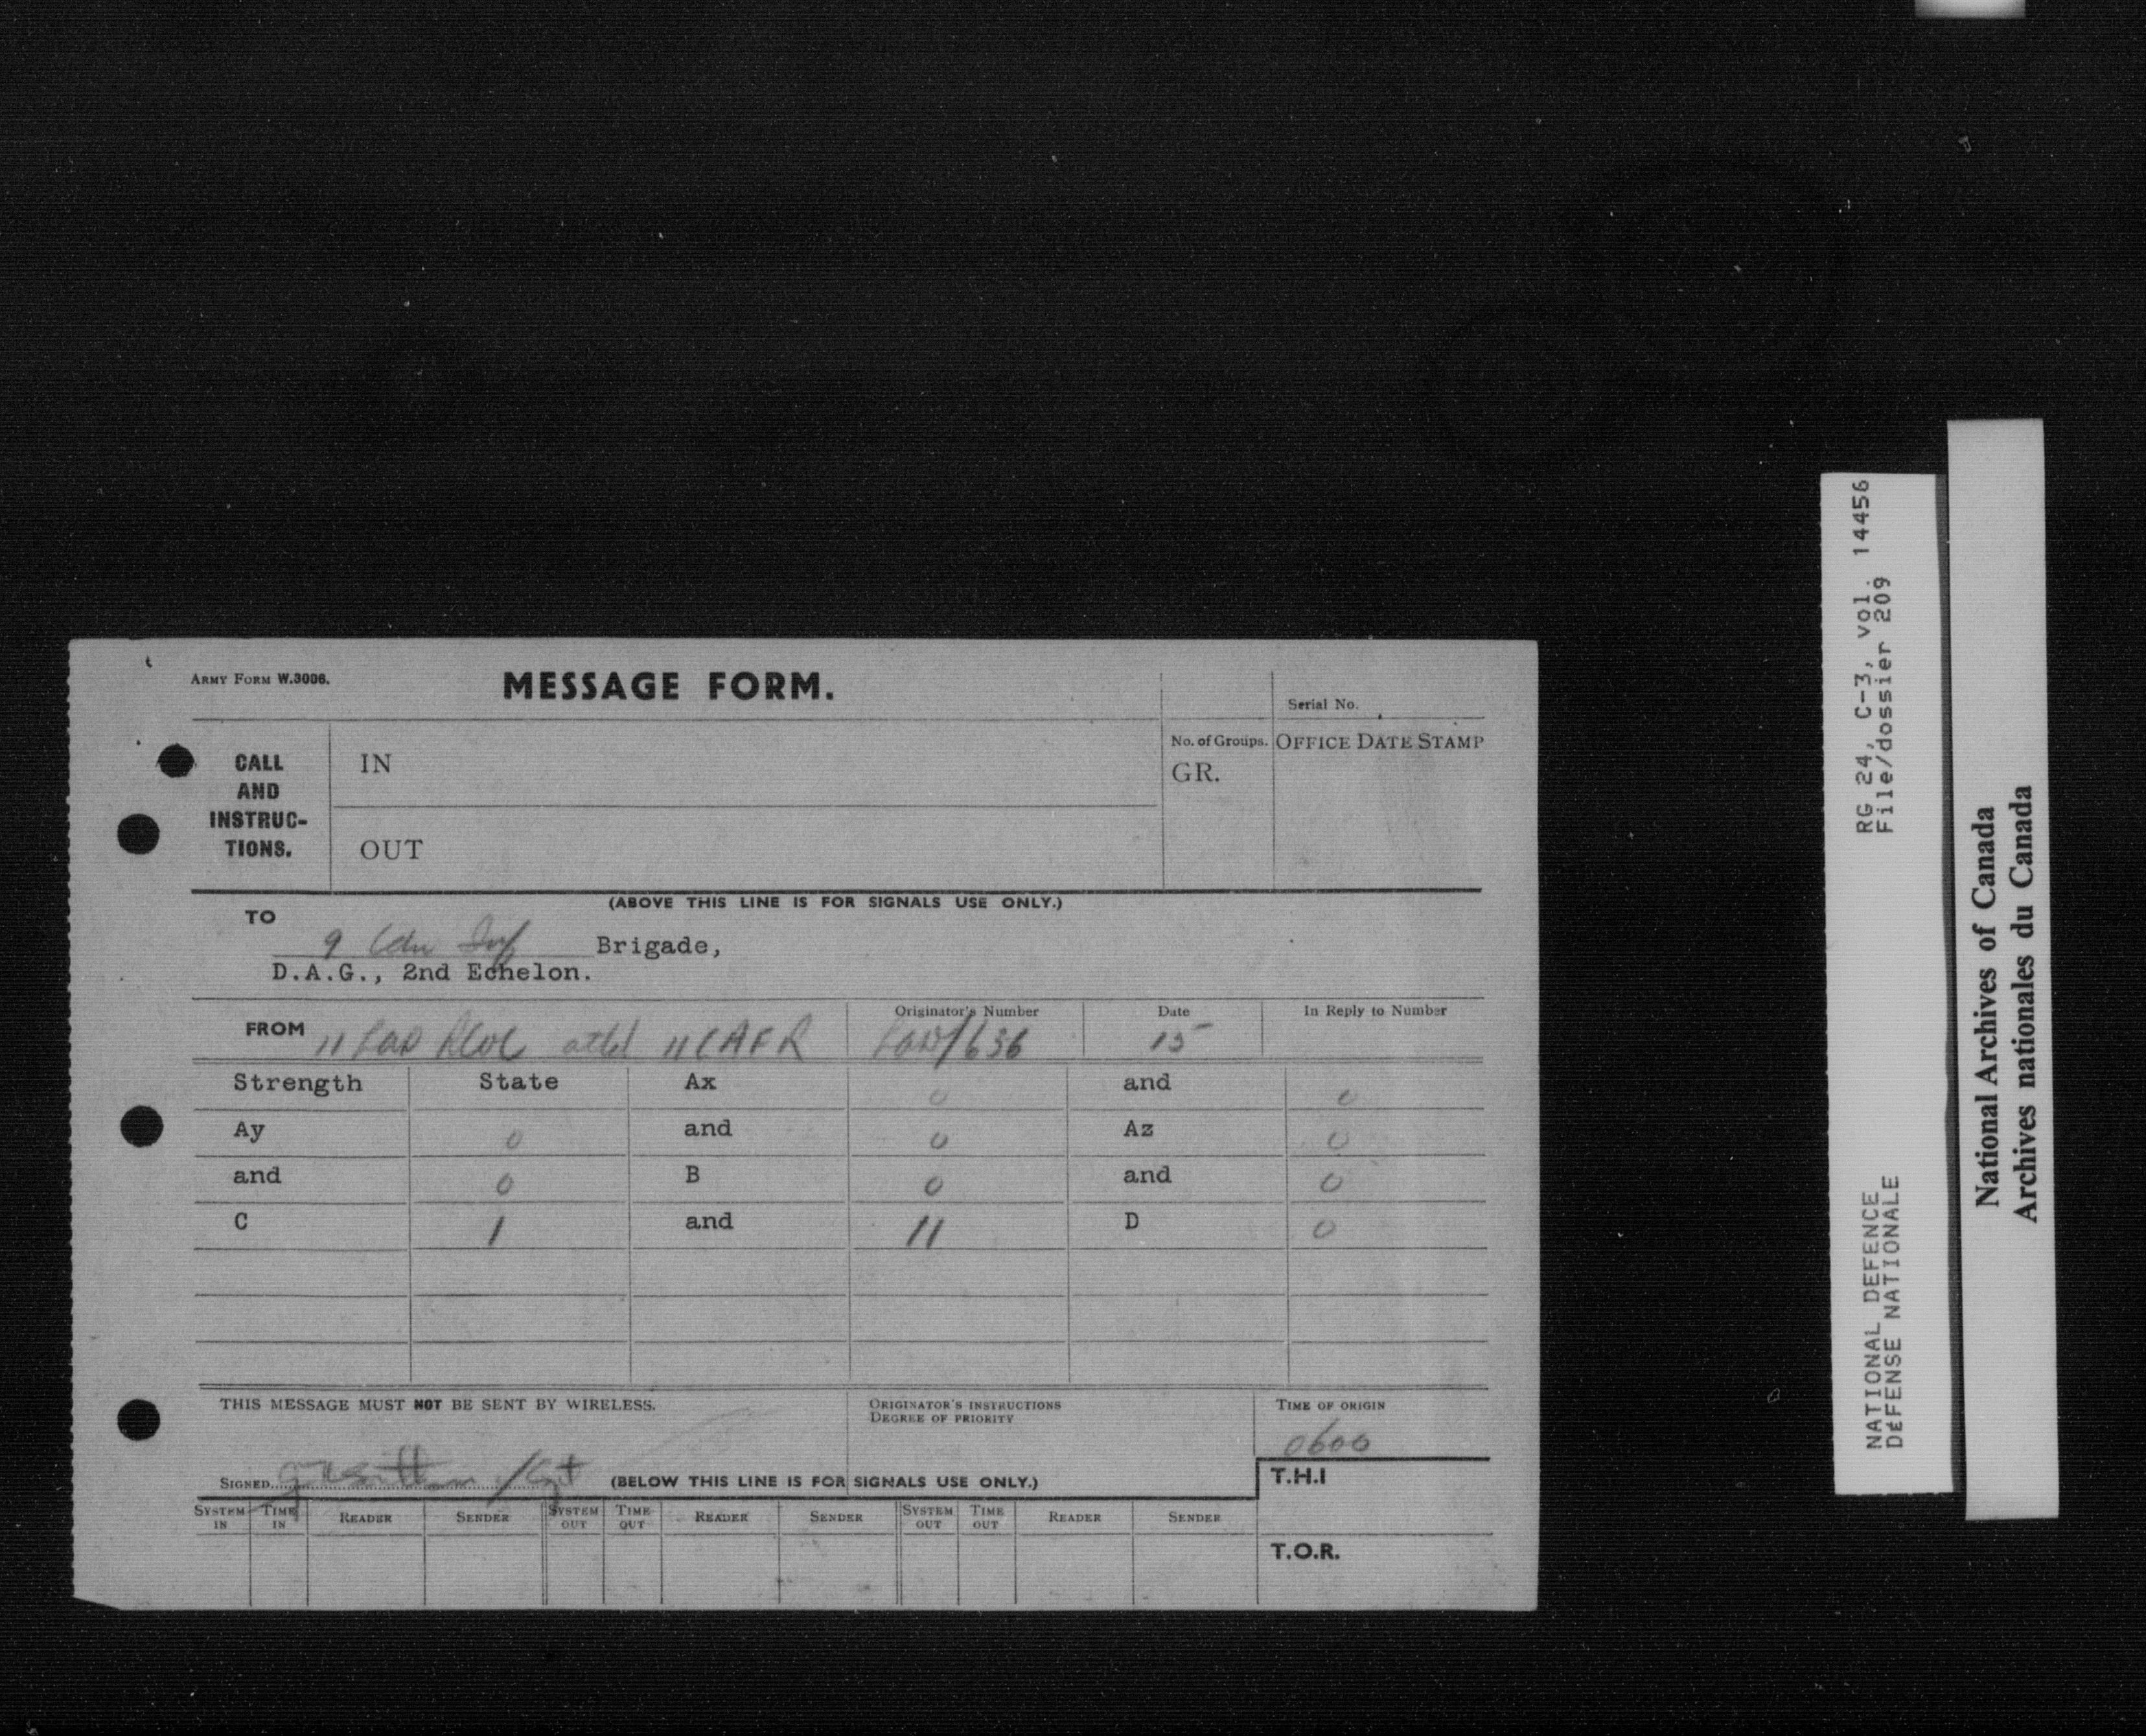 ARMY FORM W.3006.
MESSAGE FORM.
Serial No.
CALL AND INSTRUC- TIONS.
IN
No. of Groups.
GR.
OFFICE DATE STAMP
OUT
(ABOVE THIS LINE IS FOR SIGNALS USE ONLY.)
TO
9 Cdn Inf Brigade,
D.A.G., 2nd Echelon.
FROM 11 LAD attd 11 CAFR
Originator's Number
LAD/636
Date
15
In Reply to Number
Strength State Ax 0 and 0
Ay 0 and 0 Az 0
and 0 B 0 and 0
C 1 and 11 D 0
THIS MESSAGE MUST NOT BE SENT BY WIRELESS.
ORIGINATOR'S INSTRUCTIONS
DEGREE OF PRIORITY
TIME OF ORIGIN
0600
SIGNED
(BELOW THIS LINE IS FOR SIGNALS USE ONLY.)
T.H.I
SYSTEM IN TIME IN READER SENDER SYSTEM OUT TIME OUT READER SENDER SYSTEM OUT TIME OUT READER SENDER
T.O.R.
RG 24, C-3, vol. 14456
File/dossier 209
NATIONAL DEFENCE
DÉFENSE NATIONALE
National Archives of Canada
Archives nationales du Canada